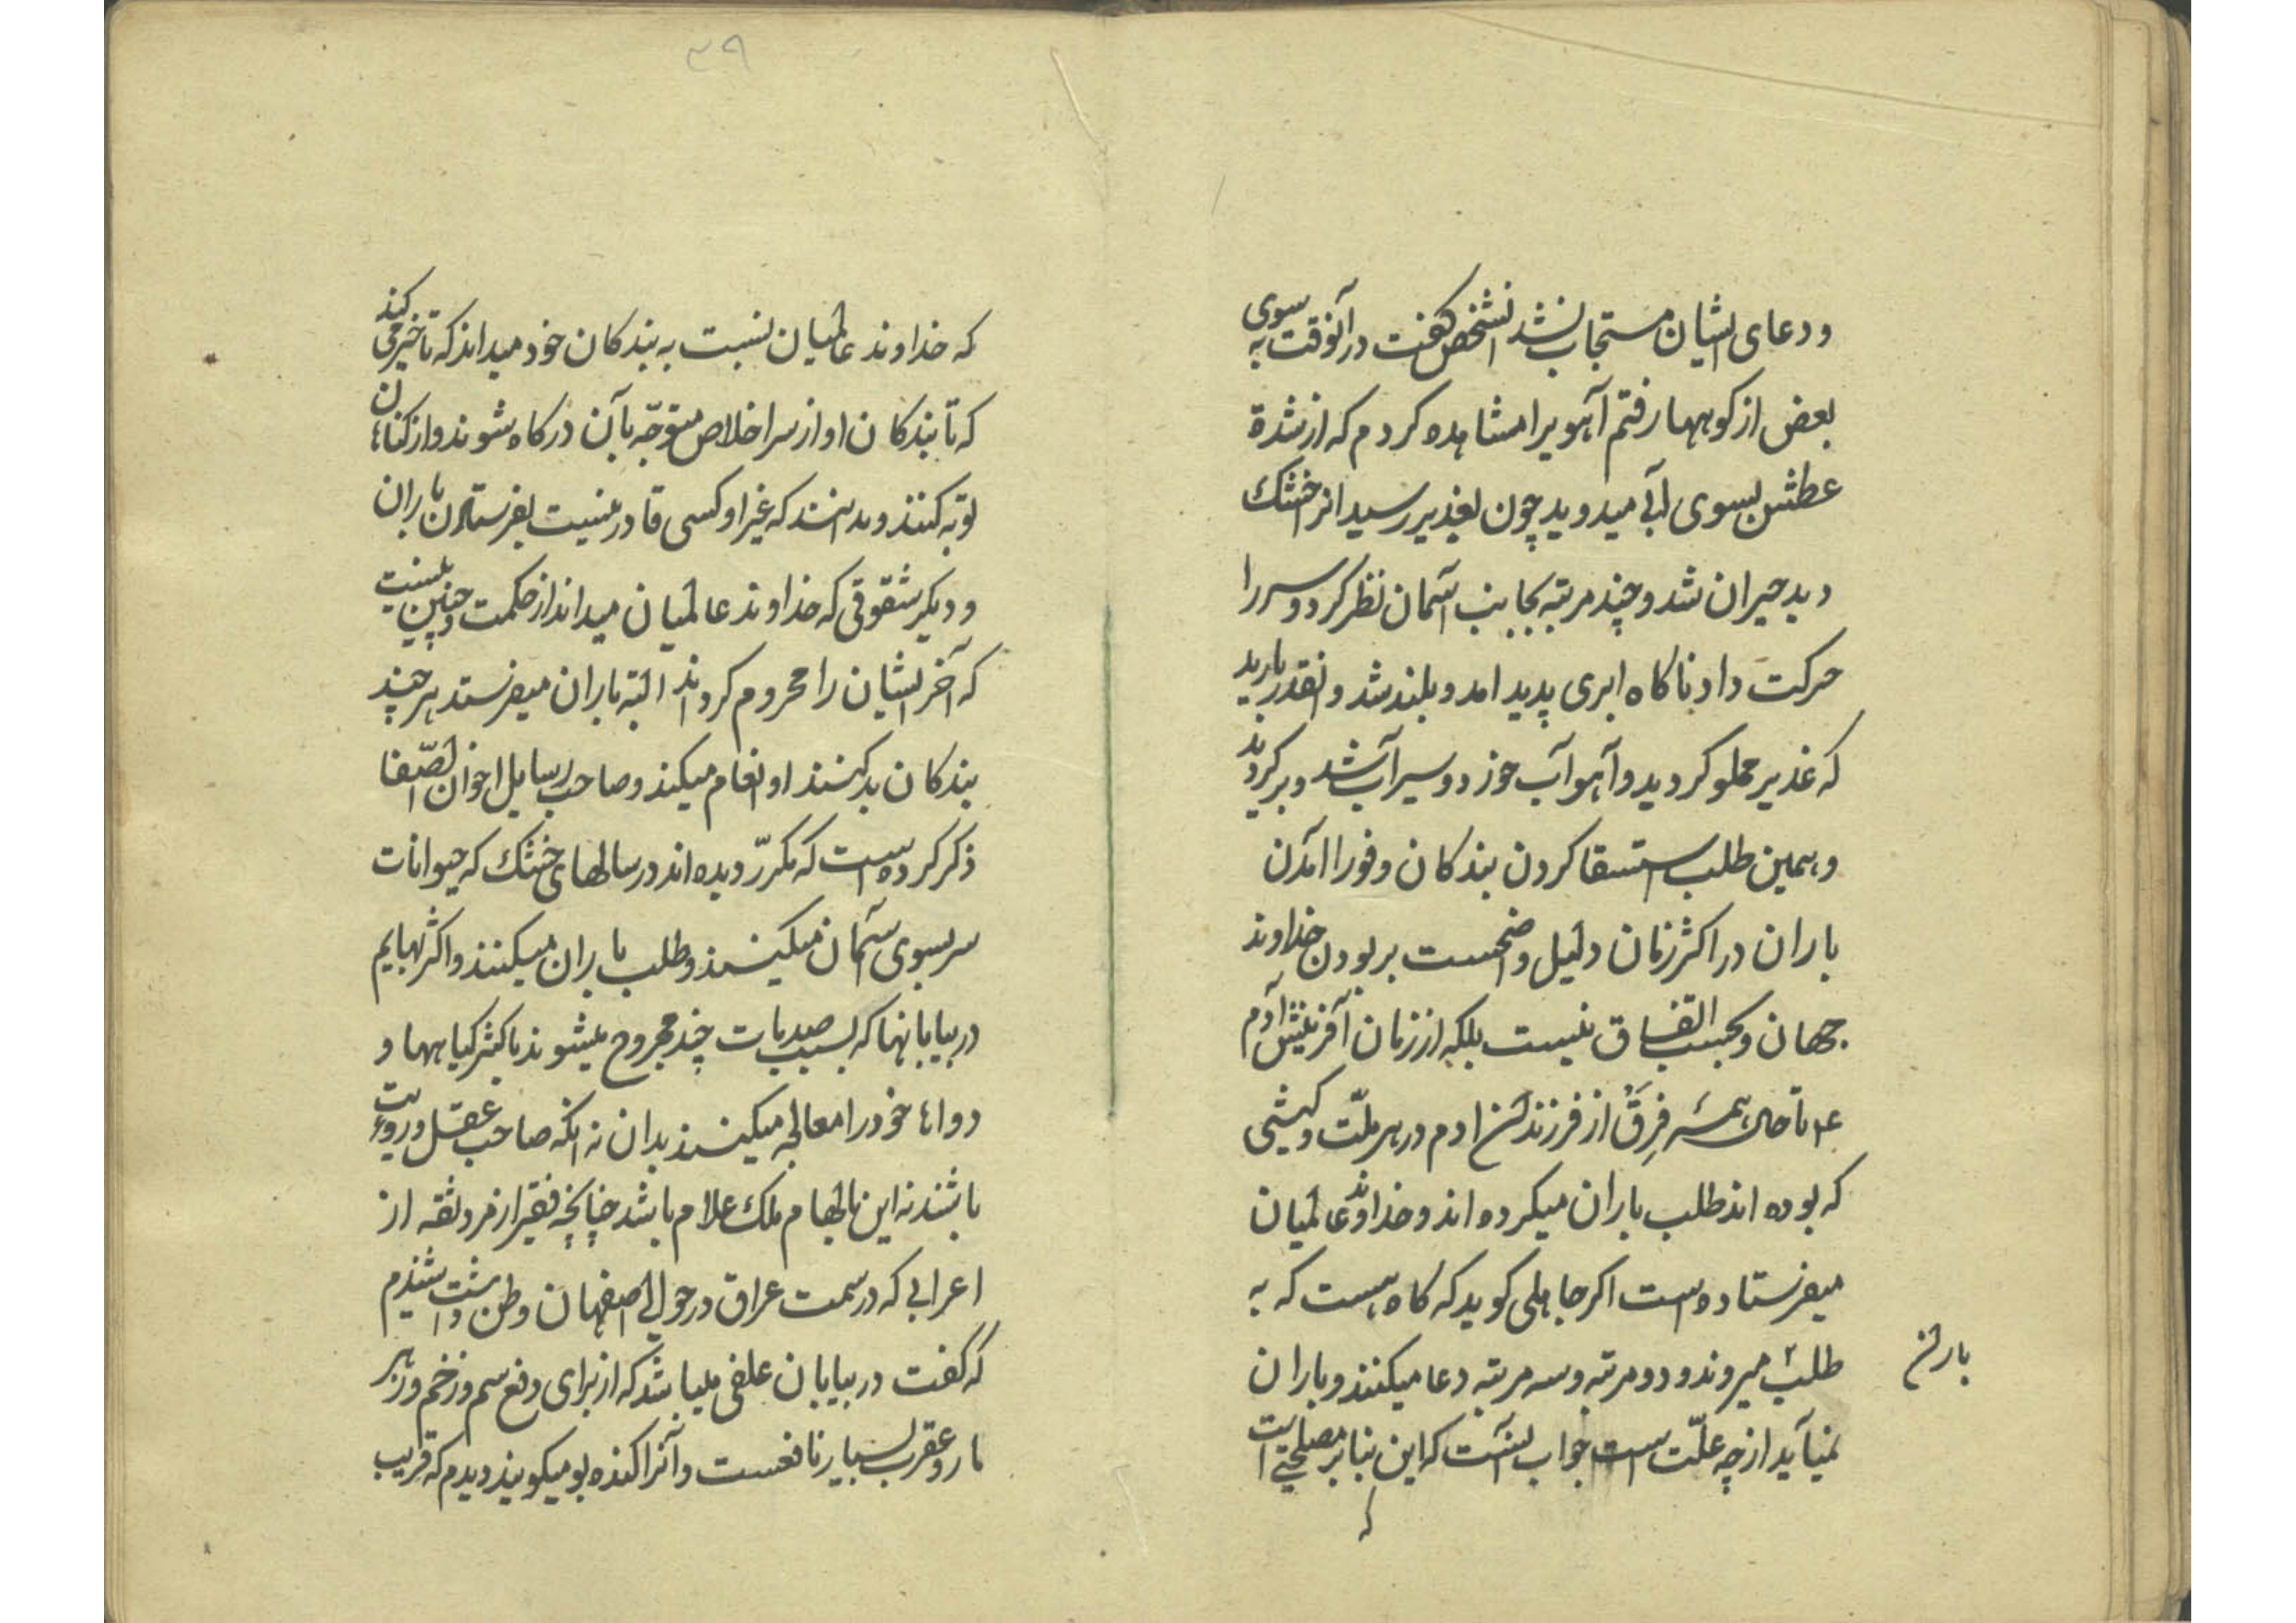 ودعای ایشان مستجاب نشد انشخص کفت در آنوقت به سوی
بعض از کوهها رفتم آهویرا مشاهده کردم که از شدة
عطش بسوی آبی میدوید چون بغدیر رسید انرا خشک
دید حیران شد و چند مرتبه بجانب آسمان نظر کرد و سر را
حرکت داد ناکاه ابری پدید امد و بلند شد و انقدر بارید
که غدیر مملو کردید و آهو آب خورد و سیر آب شد و برکردید
و همین طلب استسقا کردن بندکان و فورا امدن
باران در اکثر زمان دلیل واضحست بر بودن خداوند
جهان و بحسب اتفاق نیست بلکه از زمان آفرینش آدم
ع تا حال همه فِرَق از فرزندان ادم در هر ملّت و کیشی
که بوده اند طلب باران میکرده اند و خداوند عالمیان
میفرستاده است اکر جاهلی کوید که کاه هست که به
طلب میروند و دو مرتبه و سه مرتبه دعا میکنند و باران
باران
نمیآید از چه علّت است جواب انست که این بنا بر مصلحتی است
که
۳۹
که خداوند عالمیان نسبت به بندکان خود میداند که تاخیر می کند
که تا بندکان او از سر اخلاص متوجّه بآن درکاه شوند و از کناهان
توبه کنند و بدانند که غیر او کسی قادر نیست بفرستادن باران
و دیکر شقوقی که خداوند عالمیان میداند از حکمت و چنین نیست
که آخر ایشان را محروم کرداند البته باران میفرستد هر چند
بندکان بد کنند او انعام میکند و صاحب رسایل اخوان الصّفا
ذکر کرده است که مکررّ دیده اند در سالهای خشک که حیوانات
سر بسوی آسمان میکنند و طلب باران میکنند و اکثر بهایم
در بیابانها که بسبب صدمات چند مجروح میشوند باکثر کیاهها و
دواها خود را معالجه میکنند بدان نه انکه صاحب عقل و رویت
باشند نه این بالهام ملک علام باشد چنانچه فقیر از مرد ثقه از
اعرابی که در سمت عراق در حوالی اصفهان وطن داشت شنیدم
که کفت در بیابان علفی میباشد که از برای دفع سم و زخم و زهر
مار و عقرب بسیار نافعست و آنرا کنده بو میکویند دیدم که قریب